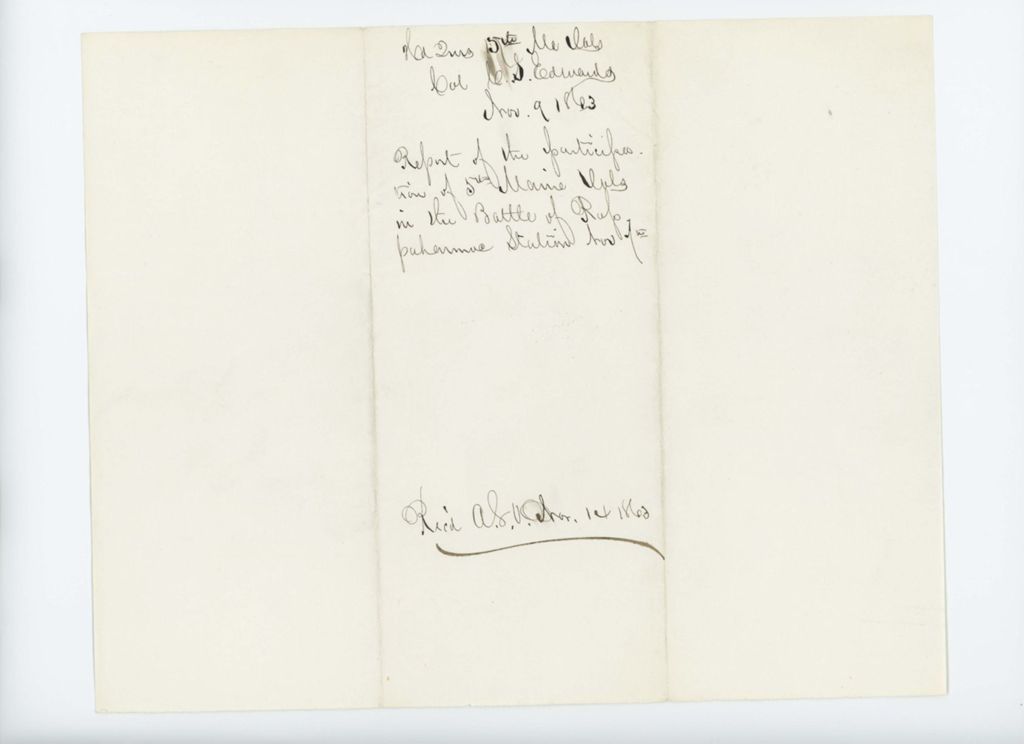 Hd Qrs 5th Me Vols
Col C. S. Edwards
Nov. 9 1863
Report of the participa-
tion of 5th Maine Vols
in the Battle of Rap
pahannoc Station Nov 7th
Rec'd A.G.O. Nov. 14 1863